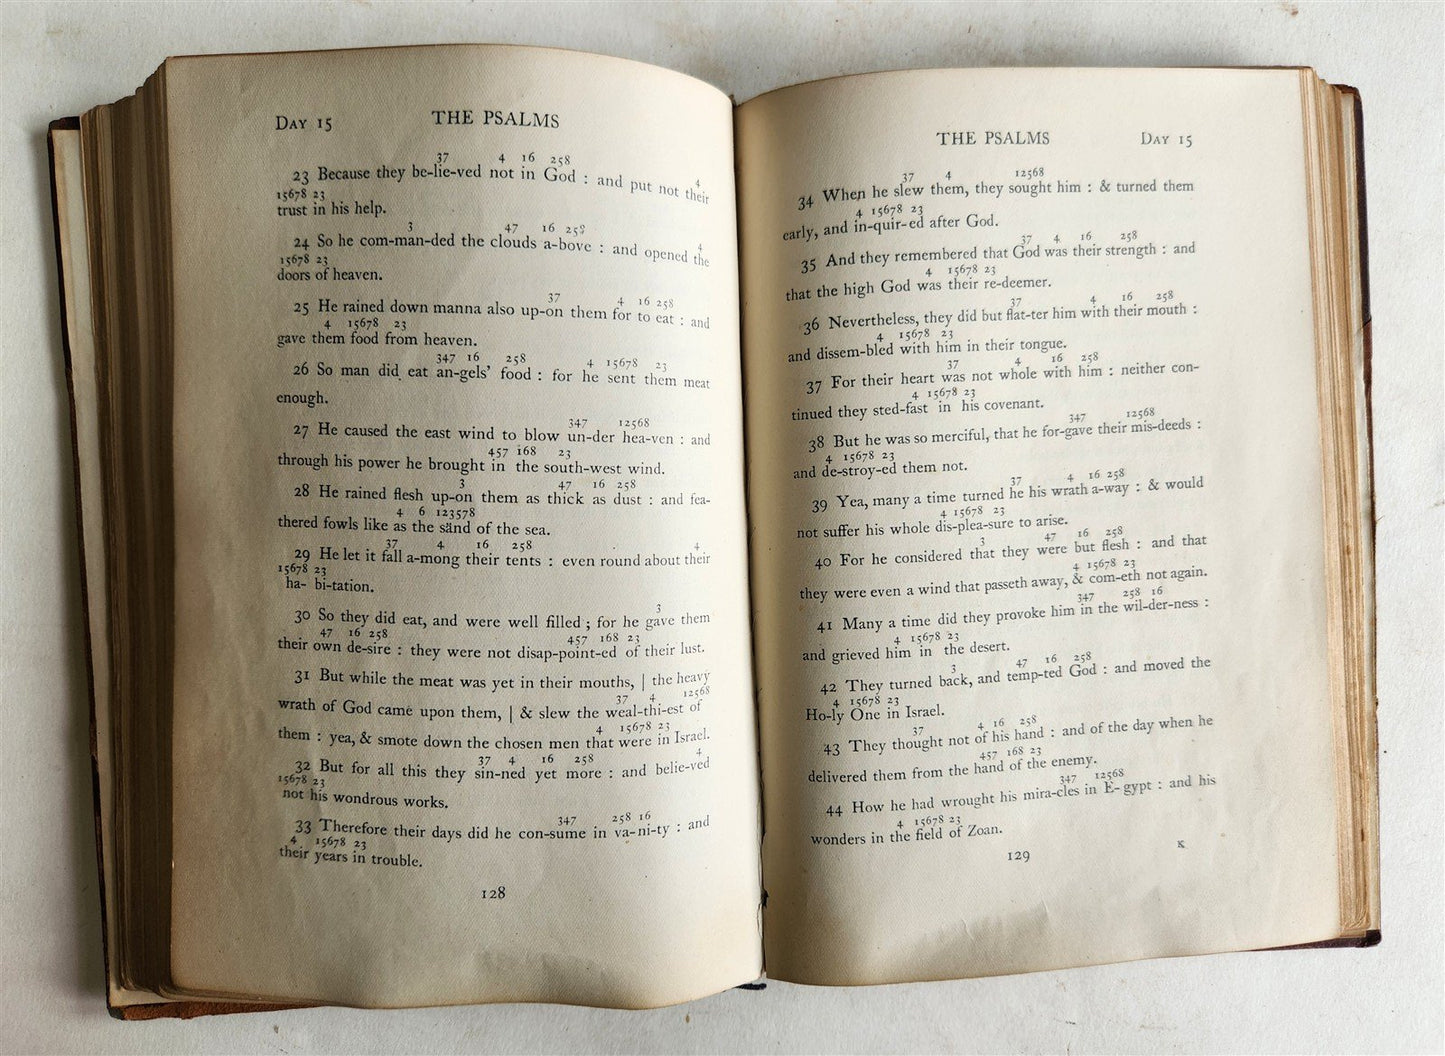 Day 15 THE PSALMS
37 4 16 258
23 Because they be-lie-ved not in God : and put not their
4
15678 23
trust in his help.
3 47 16 258
24 So he com-man-ded the clouds a-bove : and opened the
4
15678 23
doors of heaven.
37 4 16 258
25 He rained down manna also up-on them for to eat : and
4 15678 23
gave them food from heaven.
347 16 258 4 15678 23
26 So man did eat an-gels' food : for he sent them meat
enough.
347 12568
27 He caused the east wind to blow un-der hea-ven : and
457 168 23
through his power he brought in the south-west wind.
3 47 16 258
28 He rained flesh up-on them as thick as dust : and fea-
4 6 123578
thered fowls like as the sand of the sea.
37 4 16 258 4
29 He let it fall a-mong their tents : even round about their
15678 23
ha- bi-tation.
3
30 So they did eat, and were well filled ; for he gave them
47 16 258 457 168 23
their own de-sire : they were not disap-point-ed of their lust.
31 But while the meat was yet in their mouths, | the heavy
37 4 12568
wrath of God came upon them, | & slew the weal-thi-est of
4 15678 23
them : yea, & smote down the chosen men that were in Israel.
37 4 16 258 4
32 But for all this they sin-ned yet more : and belie-ved
15678 23
not his wondrous works.
347 258 16
33 Therefore their days did he con-sume in va-ni-ty : and
4 15678 23
their years in trouble.
128
THE PSALMS Day 15
37 4 12568
34 When he slew them, they sought him : & turned them
4 15678 23
early, and in-quir-ed after God.
37 4 16 258
35 And they remembered that God was their strength : and
4 15678 23
that the high God was their re-deemer.
37 4 16 258
36 Nevertheless, they did but flat-ter him with their mouth :
4 15678 23
and dissem-bled with him in their tongue.
37 4 16 258
37 For their heart was not whole with him : neither con-
4 15678 23
tinued they sted-fast in his covenant.
347 12568
38 But he was so merciful, that he for-gave their mis-deeds :
4 15678 23
and de-stroy-ed them not.
37 4 16 258
39 Yea, many a time turned he his wrath a-way : & would
4 15678 23
not suffer his whole dis-plea-sure to arise.
3 47 16 258
40 For he considered that they were but flesh : and that
4 15678 23
they were even a wind that passeth away, & com-eth not again.
347 258 16
41 Many a time did they provoke him in the wil-der-ness :
4 15678 23
and grieved him in the desert.
3 47 16 258
42 They turned back, and temp-ted God : and moved the
4 15678 23
Ho-ly One in Israel.
37 4 16 258
43 They thought not of his hand : and of the day when he
457 168 23
delivered them from the hand of the enemy.
347 12568
44 How he had wrought his mira-cles in E-gypt : and his
4 15678 23
wonders in the field of Zoan.
129 K